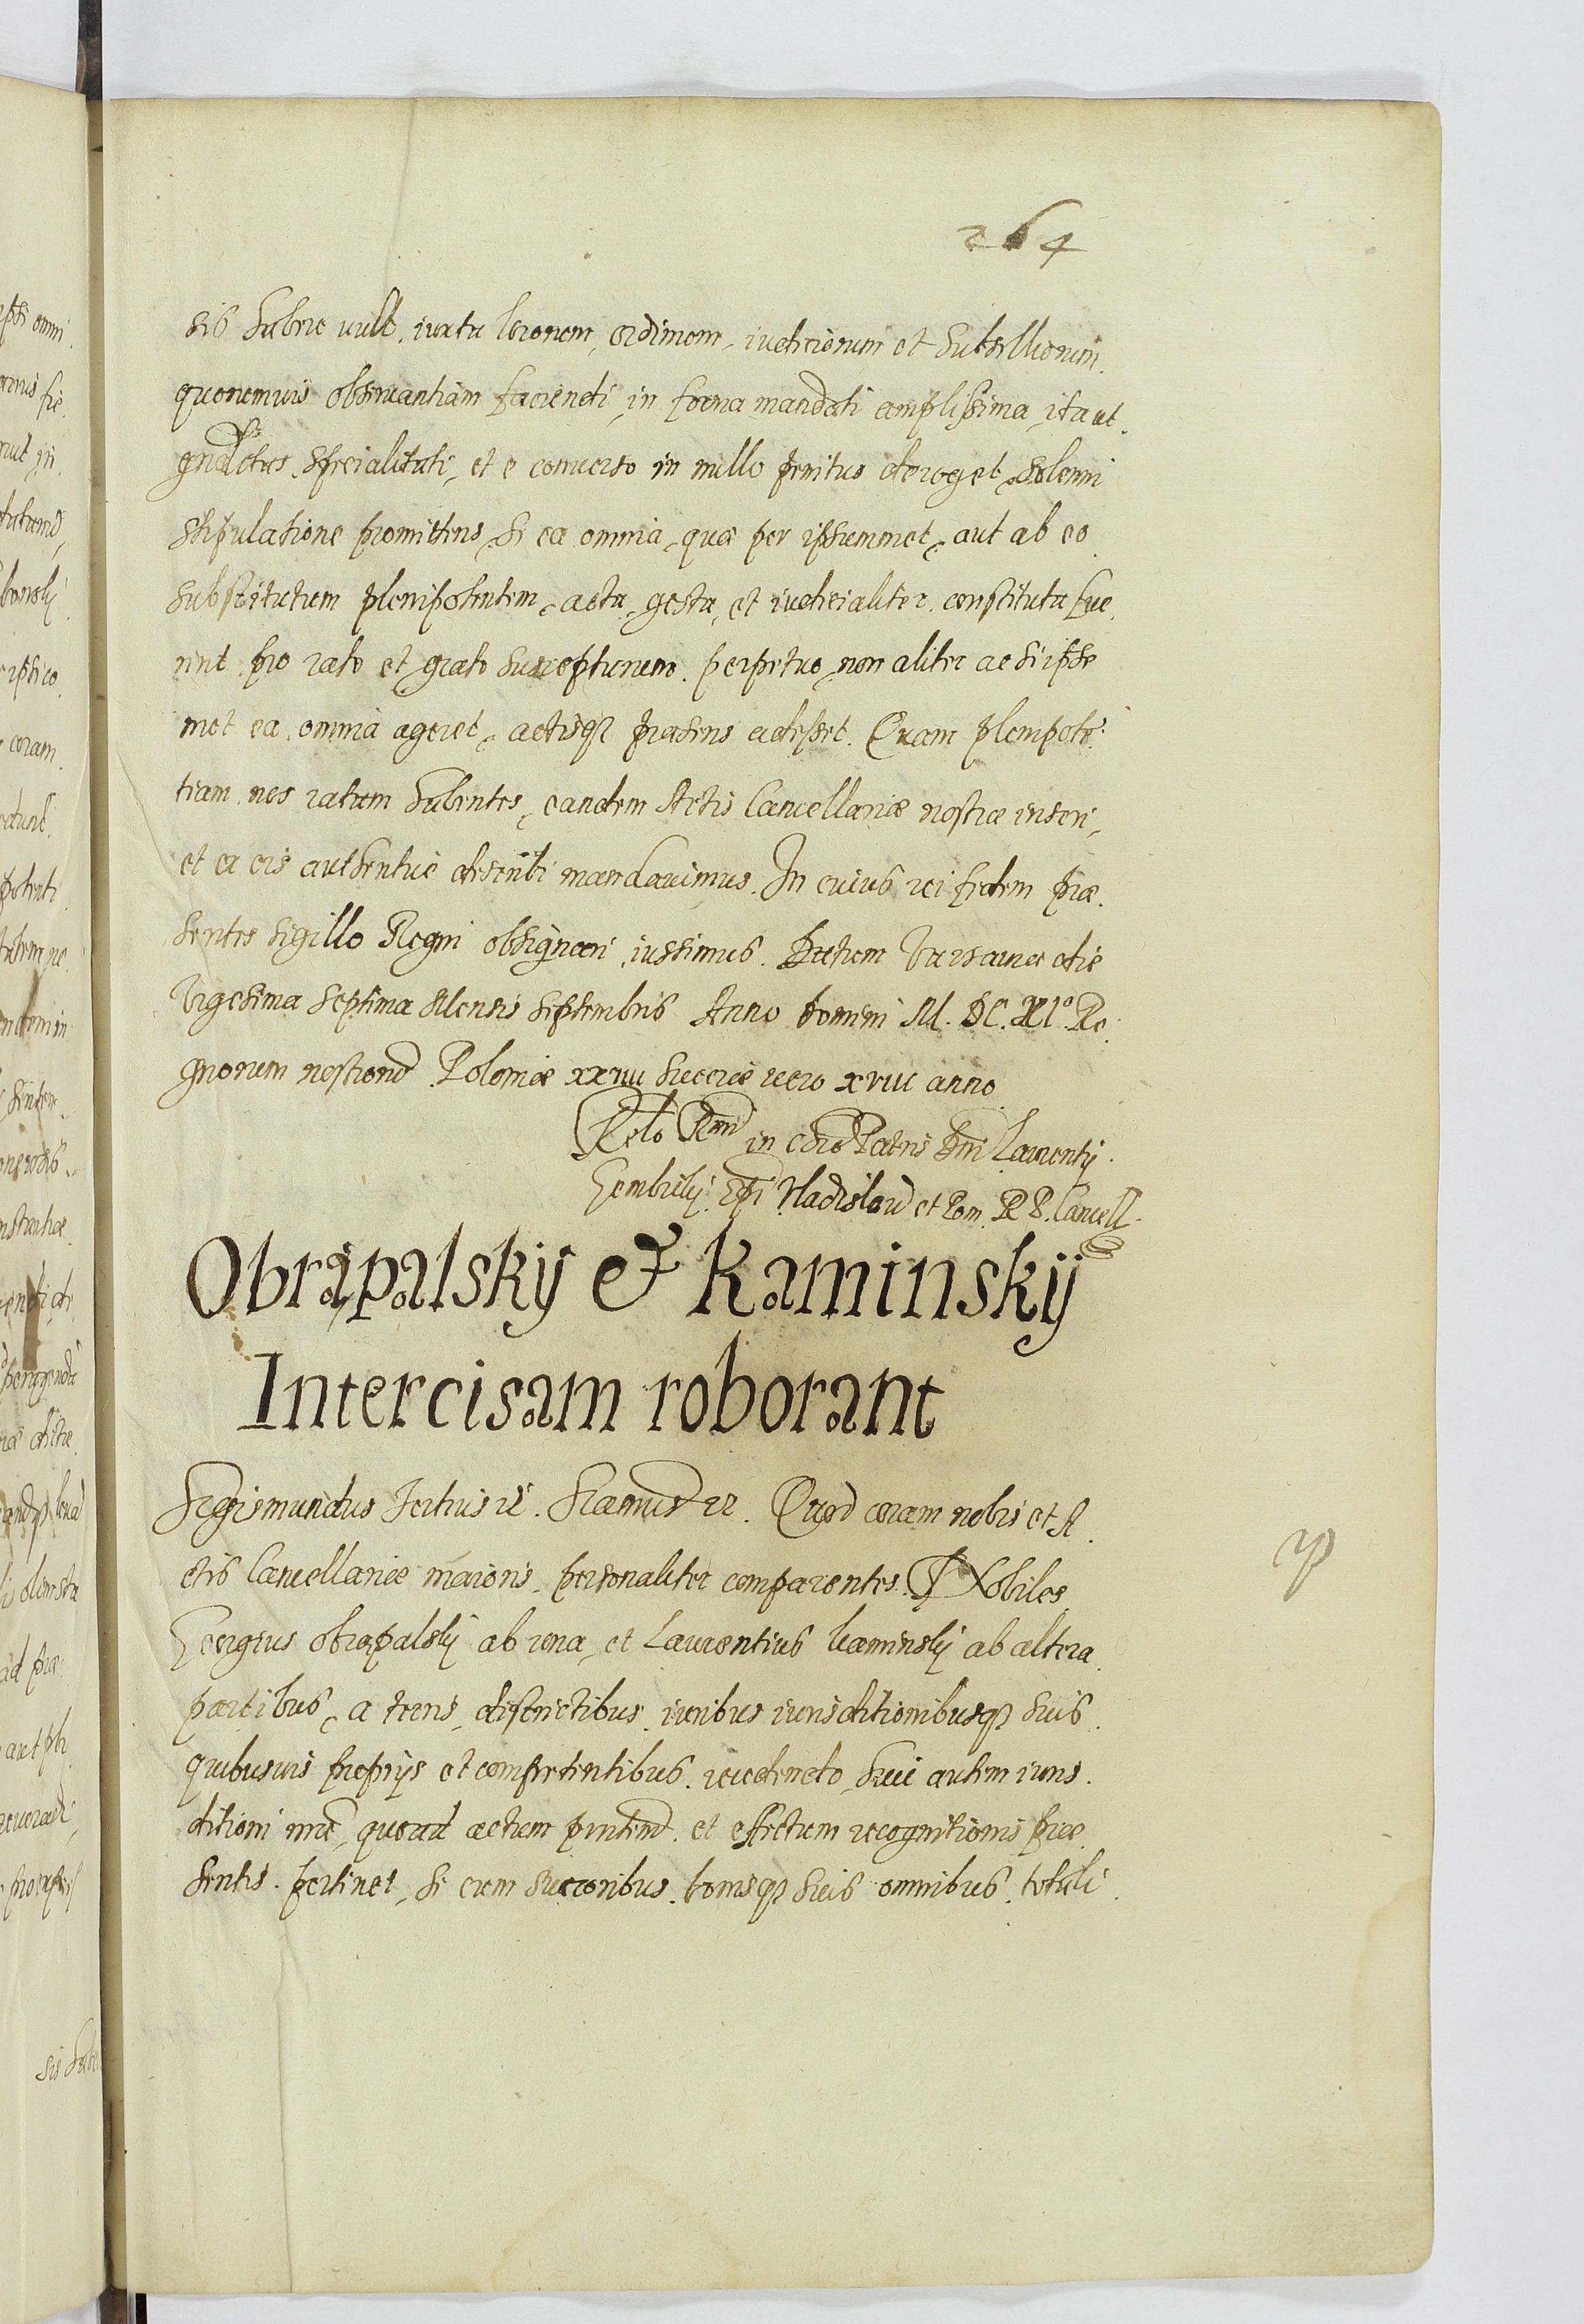 264
sis habere vult, iuxta locorum, ordinem, iudiciorum et subselliorum
quorumuis obseruantiam faciendi, in forma mandati amplissima, ita ut
gnalitas specialitati, et e conuerso in nullo penitus deroget, solenni
stipulatione promittens, se ea omnia, quæ per ipsummet, aut ab eo
substitutum plenipotentem, acta, gesta, et iudicialiter constituta fue
rint pro rato et grato suscepturum perpetuo, non aliter ac si ipse
met ea omnia ageret, actisq₃ præsens adesset. Quam plenipotē
tiam nos ratam habentes, eandem Actis Cancellariæ nostræ inseri,
et ex eis authentice describi mandauimus. In cuius rei fidem præ
sentes sigillo Regni obsignari iussimus. Datum Varsauiæ die
Vigesima septima Mensis Septembris Anno Domini M. DC. XI°. Re
gnorum nostrorū Poloniæ xxiiii Sueciæ vero xviii anno
Relō Rnd in Chrō Patris Dni Laurentij
Gembicky Epi Vladislauiē et Pom. R P. Cancell.
Obrąpalskij & Kaminskij
Intercisam roborant
Sigismundus Tertius rē. Sicamus rē. Quod coram nobis et A
ctis Cancellariæ maioris personaliter comparentes Nobiles
Georgius Obrąpalsky ab una, et Laurentius Kaminsky ab altera
partibus, a terris, districtibus, iuribus iurisditionibusq₃ suis
quibusuis proprijs et competentibus recedendo, suæ autem iuris
ditioni nræ, quoad actum pñtem et effectum recognitionis præ
sentis pertinet, se cum successoribus, bonisq₃ suis omnibus, totali